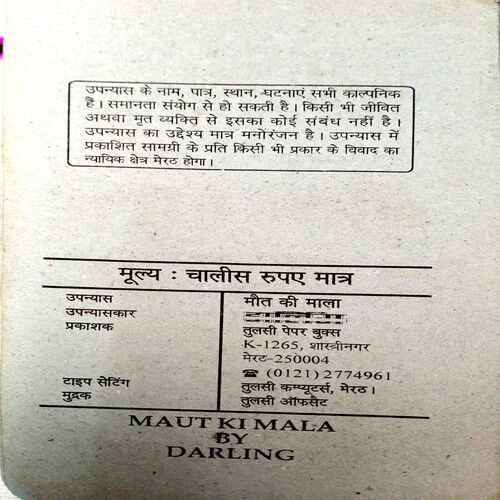 उपन्यास के नाम, पात्र, स्थान, घटनाएं सभी काल्पनिक
हैं। समानता संयोग से हो सकती है। किसी भी जीवित
अथवा मृत व्यक्ति से इसका कोई संबंध नहीं है।
उपन्यास का उद्देश्य मात्र मनोरंजन है। उपन्यास में
प्रकाशित सामग्री के प्रति किसी भी प्रकार के विवाद का
न्यायिक क्षेत्र मेरठ होगा।
मूल्य : चालीस रुपए मात्र
उपन्यास मौत की माला
उपन्यासकार
प्रकाशक तुलसी पेपर बुक्स
K-1265, शास्त्रीनगर
मेरठ-250004
☎ (0121) 2774961
टाइप सेटिंग तुलसी कम्प्यूटर्स, मेरठ।
मुद्रक तुलसी ऑफसैट
MAUT KI MALA
BY
DARLING